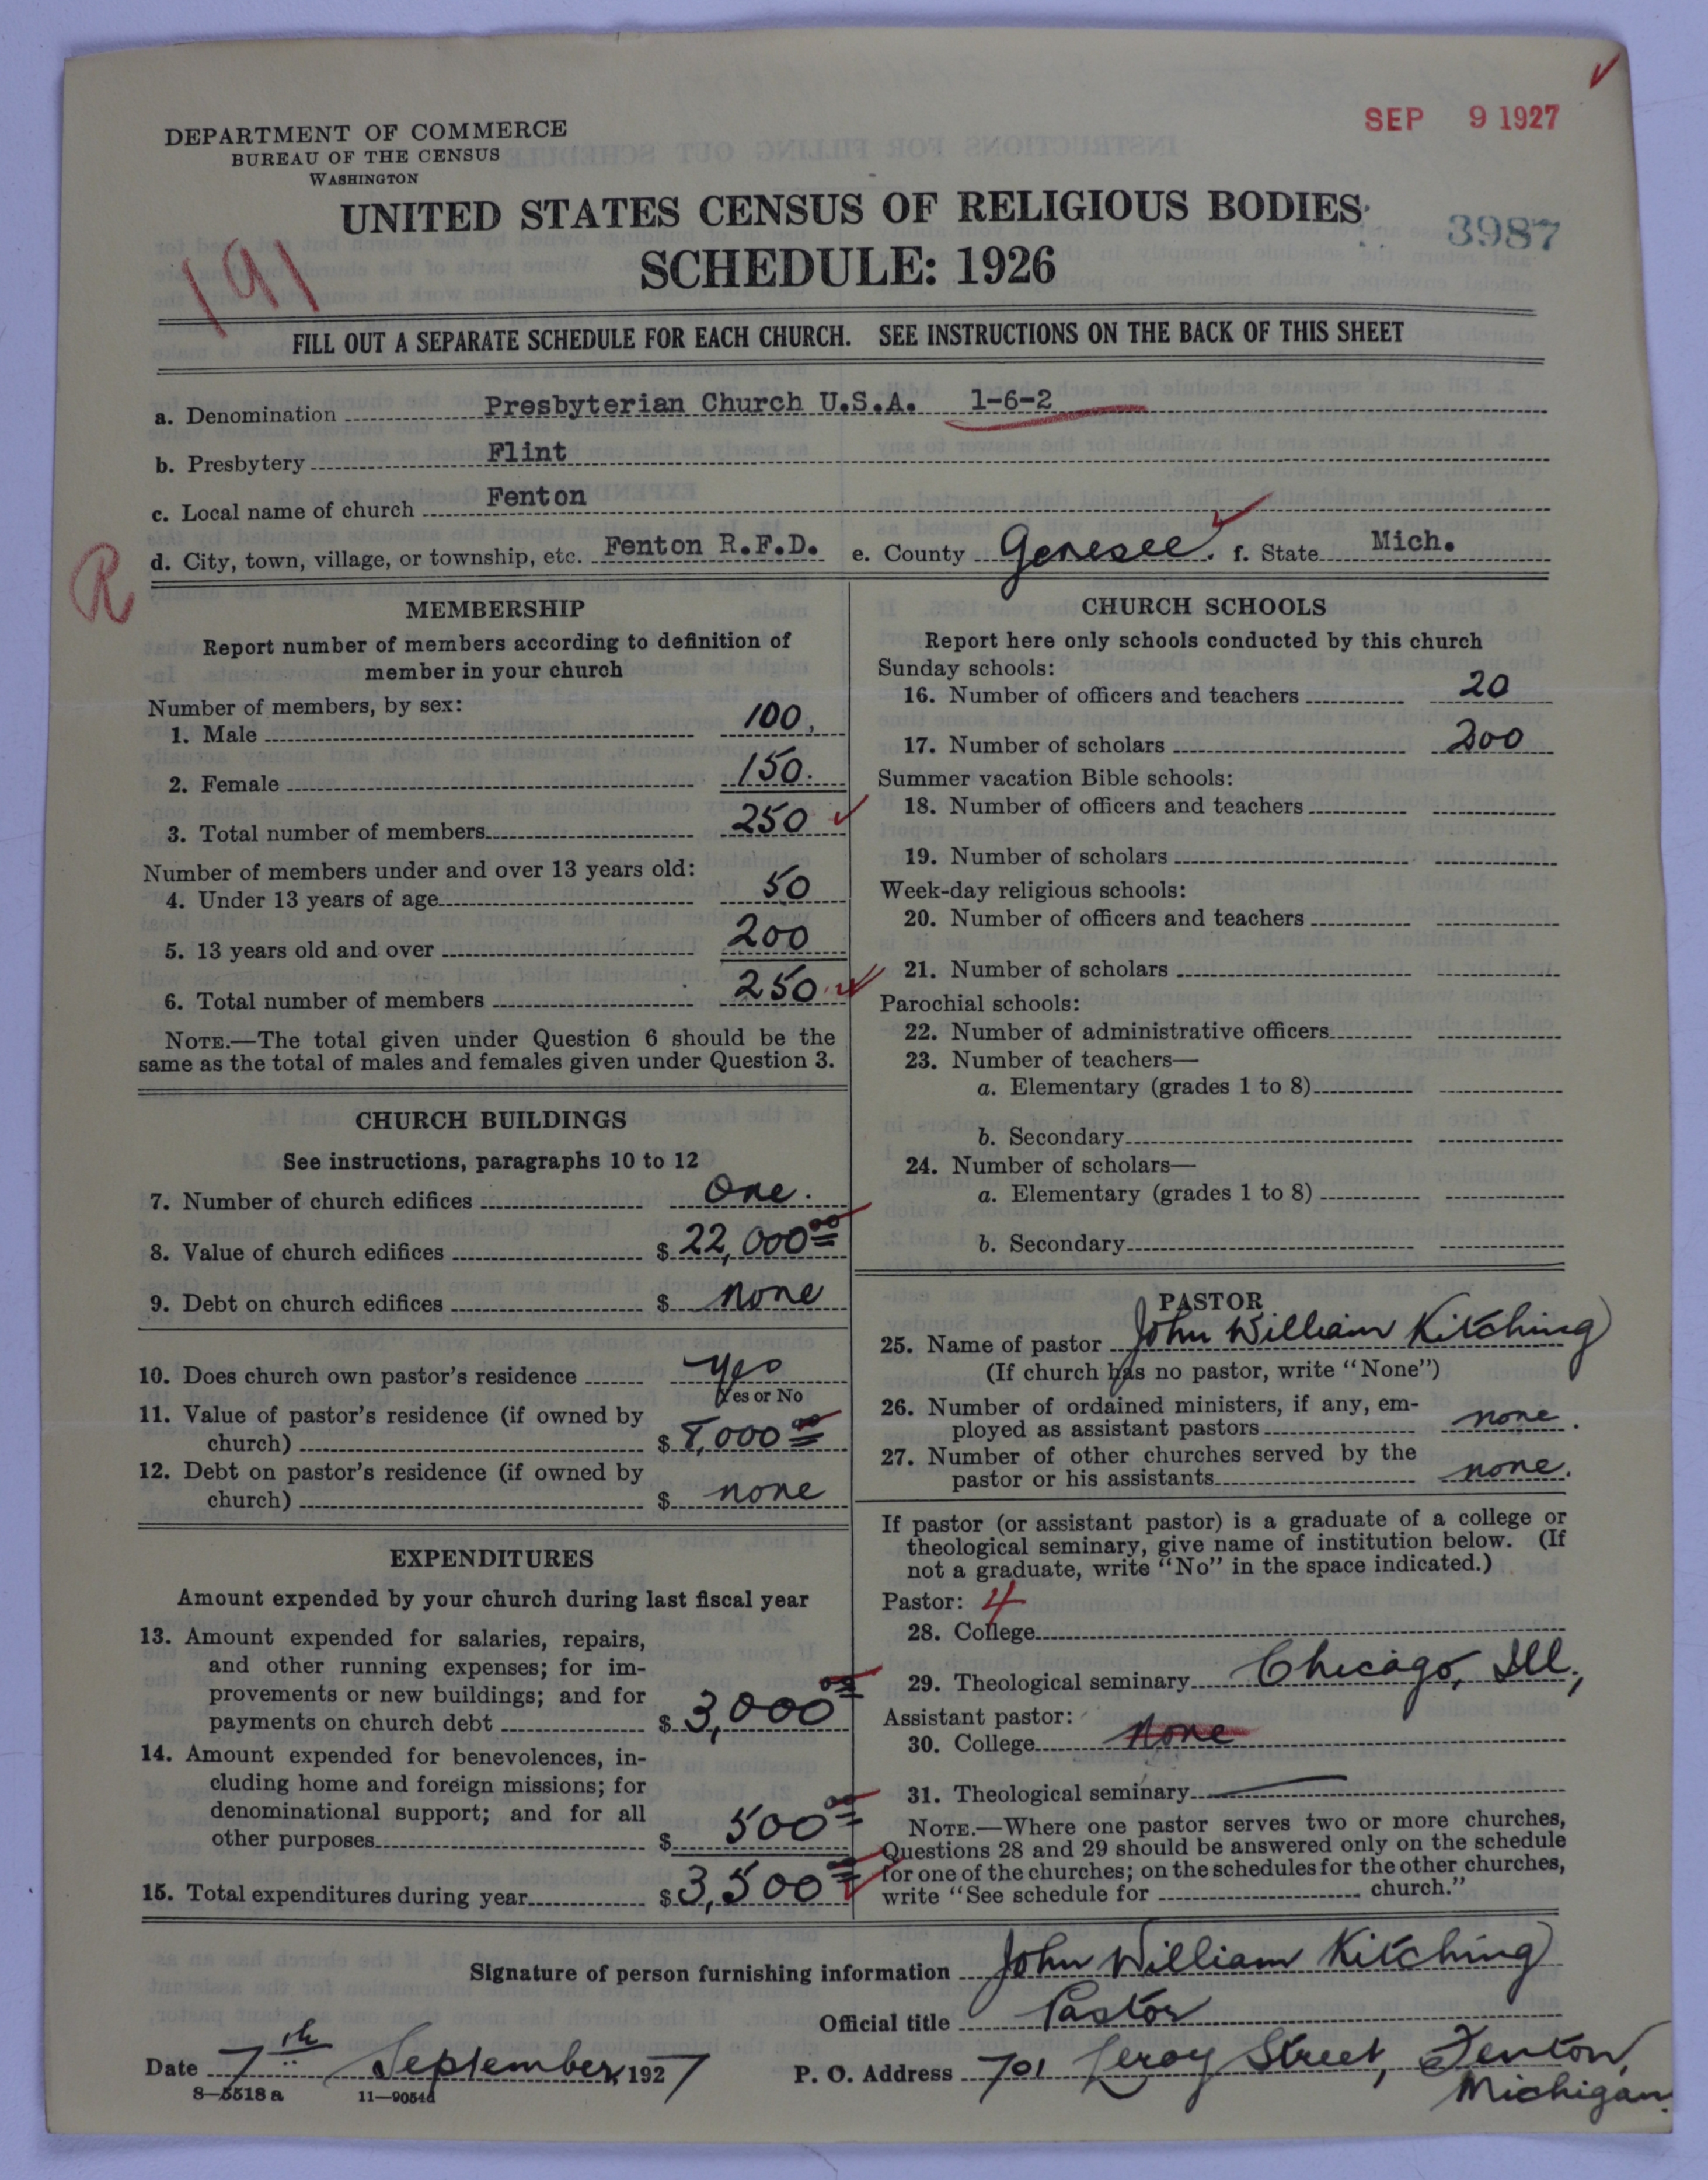 SEP 9 1927
DEPARTMENT OF COMMERCE
BUREAU OF THE CENSUS
WASHINGTON
UNITED STATES CENSUS OF RELIGIOUS BODIES
3987
SCHEDULE: 1926
191
FILL OUT A SEPARATE SCHEDULE FOR EACH CHURCH. SEE INSTRUCTIONS ON THE BACK OF THIS SHEET
a. Denomination Presbyterian Church U.S.A. 1-6-2
b. Presbytery Flint
c. Local name of church Fenton
R
d. City, town, village, or township, etc. Fenton R.F.D. e. County Genesee. f. State Mich.
MEMBERSHIP
Report number of members according to definition of
member in your church
Number of members, by sex:
1. Male 100.
2. Female 150.
3. Total number of members 250
Number of members under and over 13 years old:
4. Under 13 years of age 50
5. 13 years old and over 200
6. Total number of members 250
NOTE.—The total given under Question 6 should be the
same as the total of males and females given under Question 3.
CHURCH BUILDINGS
See instructions, paragraphs 10 to 12
7. Number of church edifices One.
8. Value of church edifices $ 22,000 00
9. Debt on church edifices $ none
10. Does church own pastor's residence yes
Yes or No
11. Value of pastor's residence (if owned by
church) $ 8,000 00
12. Debt on pastor's residence (if owned by
church) $ none
EXPENDITURES
Amount expended by your church during last fiscal year
13. Amount expended for salaries, repairs,
and other running expenses; for im-
provements or new buildings; and for
payments on church debt $ 3,000 00
14. Amount expended for benevolences, in-
cluding home and foreign missions; for
denominational support; and for all
other purposes $ 500 00
15. Total expenditures during year $ 3,500 00
CHURCH SCHOOLS
Report here only schools conducted by this church
Sunday schools:
16. Number of officers and teachers 20
17. Number of scholars 200
Summer vacation Bible schools:
18. Number of officers and teachers
19. Number of scholars
Week-day religious schools:
20. Number of officers and teachers
21. Number of scholars
Parochial schools:
22. Number of administrative officers
23. Number of teachers—
a. Elementary (grades 1 to 8)
b. Secondary
24. Number of scholars—
a. Elementary (grades 1 to 8)
b. Secondary
PASTOR
25. Name of pastor John William Kitching
(If church has no pastor, write "None")
26. Number of ordained ministers, if any, em-
ployed as assistant pastors none.
27. Number of other churches served by the
pastor or his assistants none.
If pastor (or assistant pastor) is a graduate of a college or
theological seminary, give name of institution below. (If
not a graduate, write "No" in the space indicated.)
Pastor: 4
28. College
29. Theological seminary Chicago, Ill.,
Assistant pastor:
30. College None
31. Theological seminary
NOTE.—Where one pastor serves two or more churches,
Questions 28 and 29 should be answered only on the schedule
for one of the churches; on the schedules for the other churches,
write "See schedule for church."
Signature of person furnishing information John William Kitching
Official title Pastor
Date 7th September, 1927 P. O. Address 701 Leroy Street, Fenton,
Michigan.
8—5518 a 11—9054d